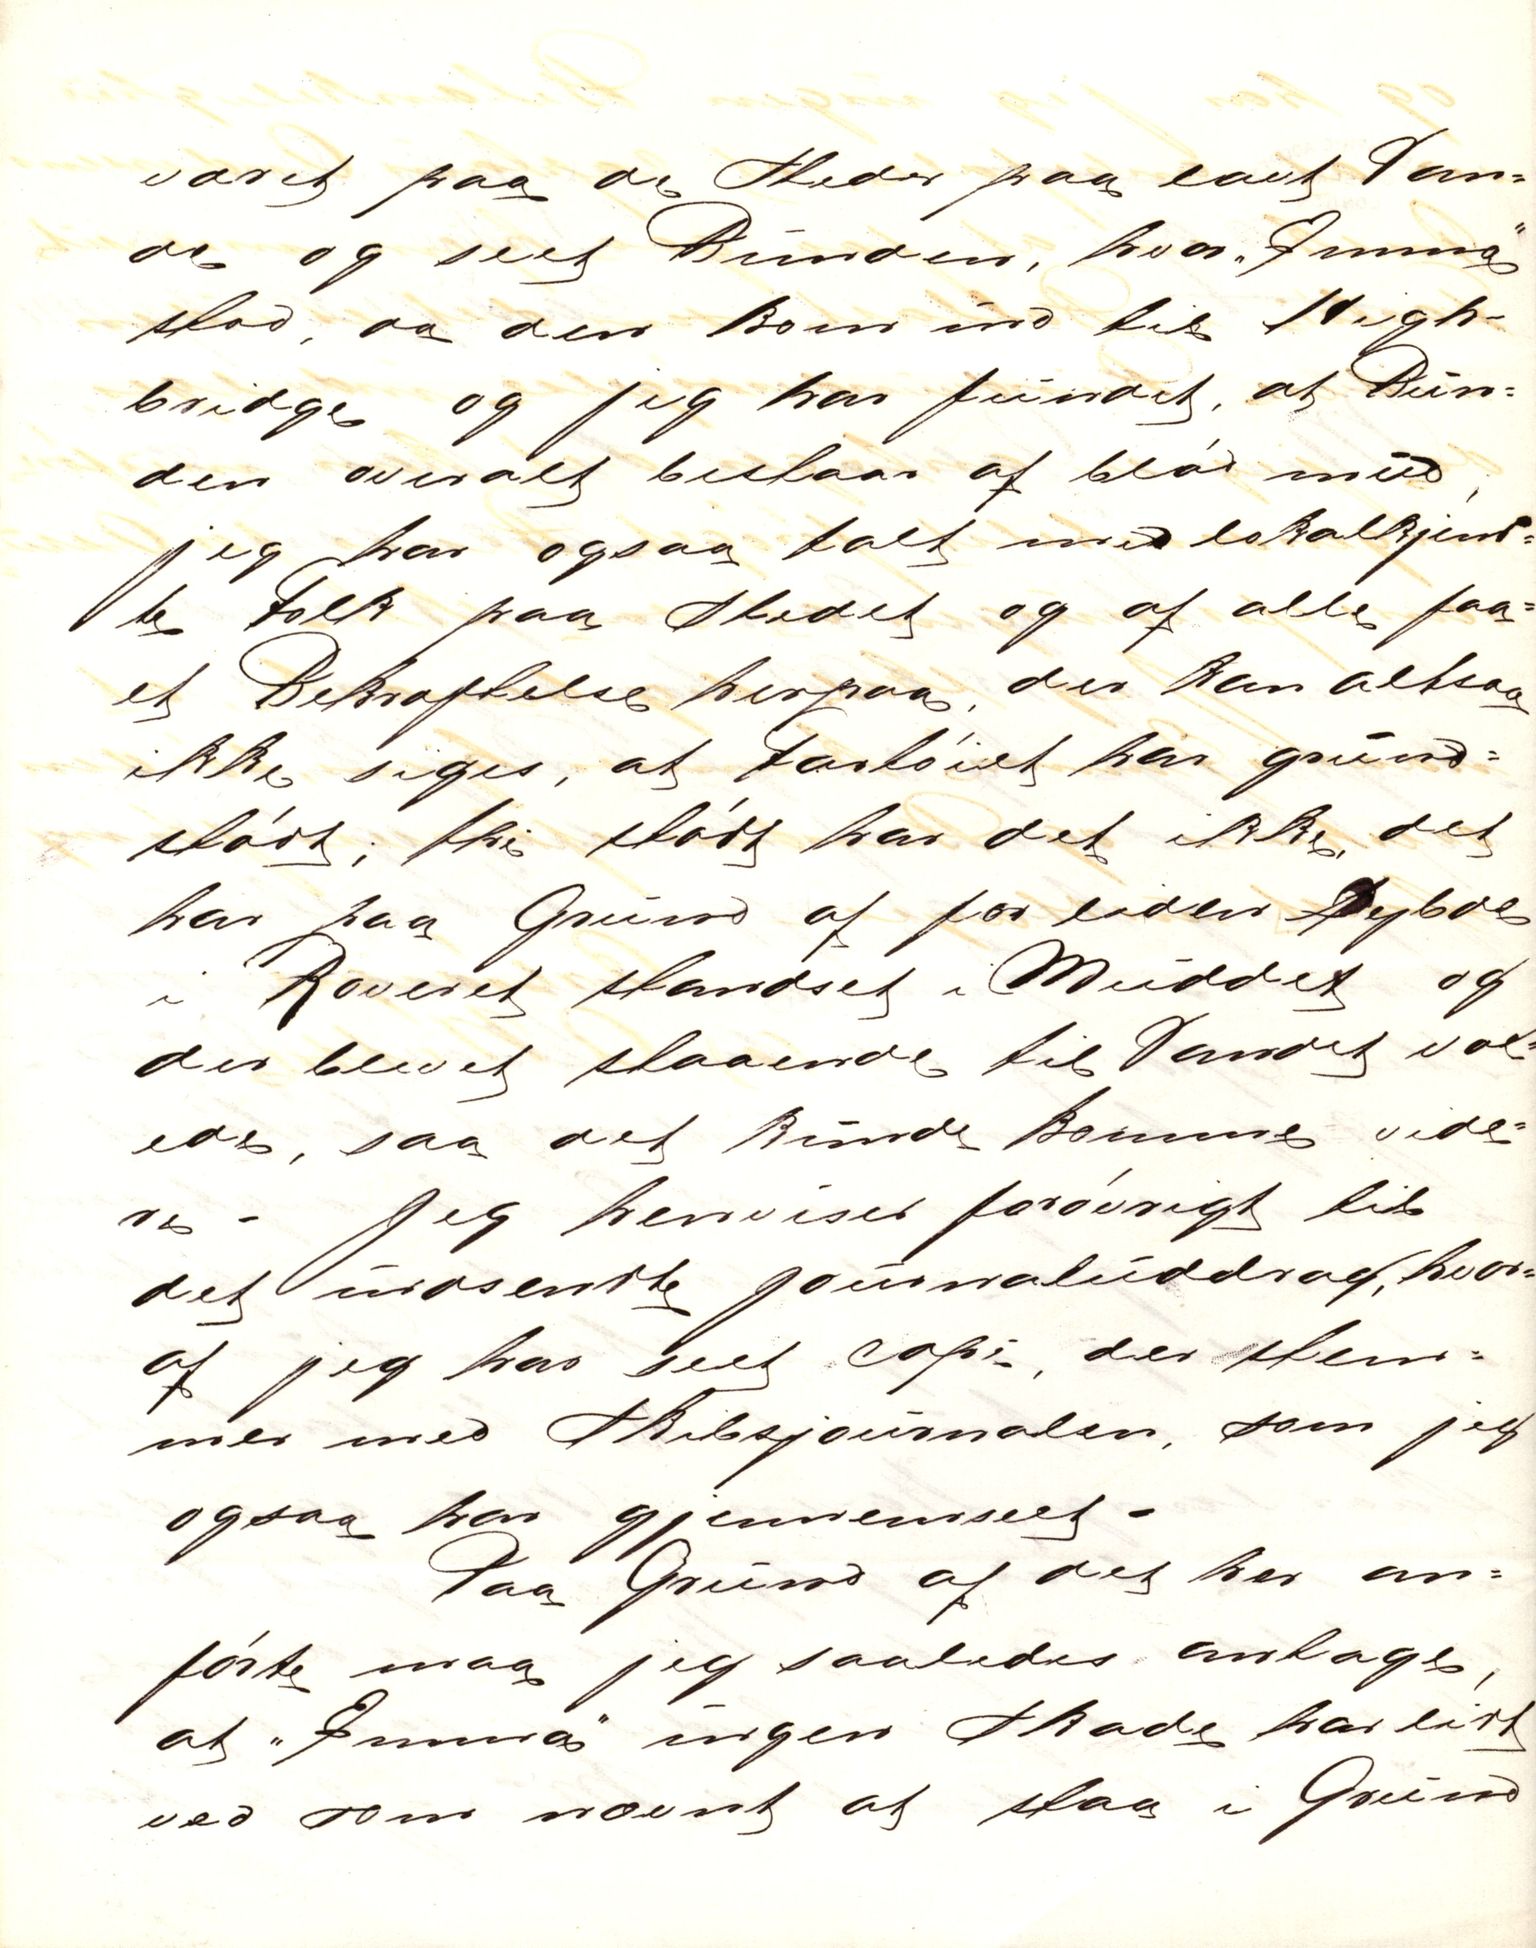 været paa de Steder paa lavt Van=
de og seet Bunden, hvor „Imma"
stod, da den kom ind til High-
bridge og jeg har fundet, at Bun=
den overalt bestaar af blød mud,
jeg har ogsaa talt med lokalkjend=
te Folk paa Stedet og af alle faa=
et Bekræftelse herpaa, der kan altsaa
ikke siges, at Fartøiet har grund=
stødt; thi stødt har det ikke, det
har paa Grund af for liden Dybde
i Reveret standset i Muddet og
der blevet staaende til Vandet vox=
ede, saa det kunde komme vide=
re - Jeg henviser forøvrigt til
det indsendte Journaluddrag, hvor=
af jeg har seet copi, der stem=
mer med Skibsjournalen, som jeg
ogsaa har gjennemseet -
Paa Grund af det her an=
førte maa jeg saaledes antage,
at „Imma" ingen Skade har lidt
ved som nævnt at staa i Grund